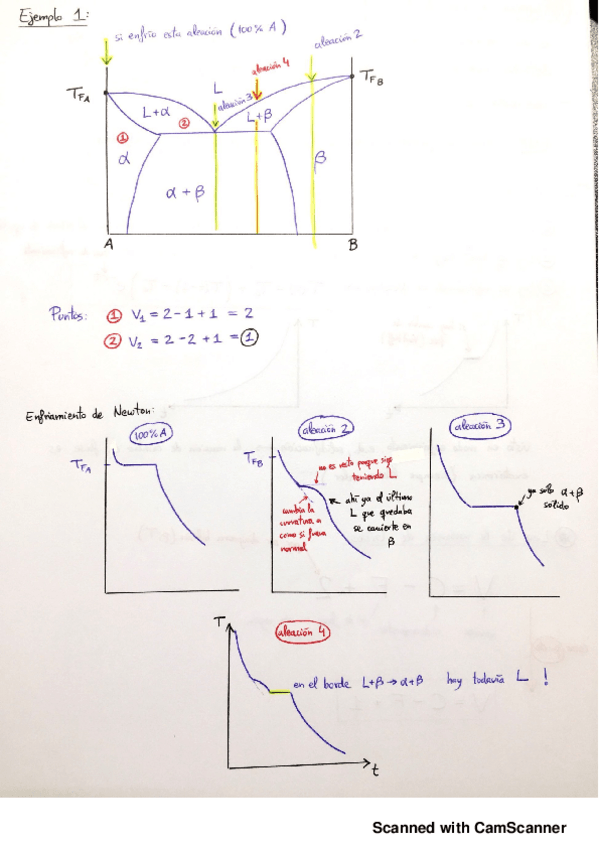 Ejemplo 1:
si enfrío esta aleación (100% A)
aleación 2
aleación 4
L
aleación 3
T_FA
T_FB
L+α
②
L+β
①
α
β
α + β
A
B
Puntos: ① V₁ = 2-1+1 = 2
② V₂ = 2-2+1 = ①
Enfriamiento de Newton:
100% A
aleación 2
aleación 3
T_FA
T_FB
no es recto porque sigo
teniendo L
cambia la
curvatura a
como si fuera
normal
ahí ya el último
L que quedaba
se convierte en
β
ya solo α+β
sólido
T
aleación 4
en el borde L+β → α+β hay todavía L !
t
Scanned with CamScanner